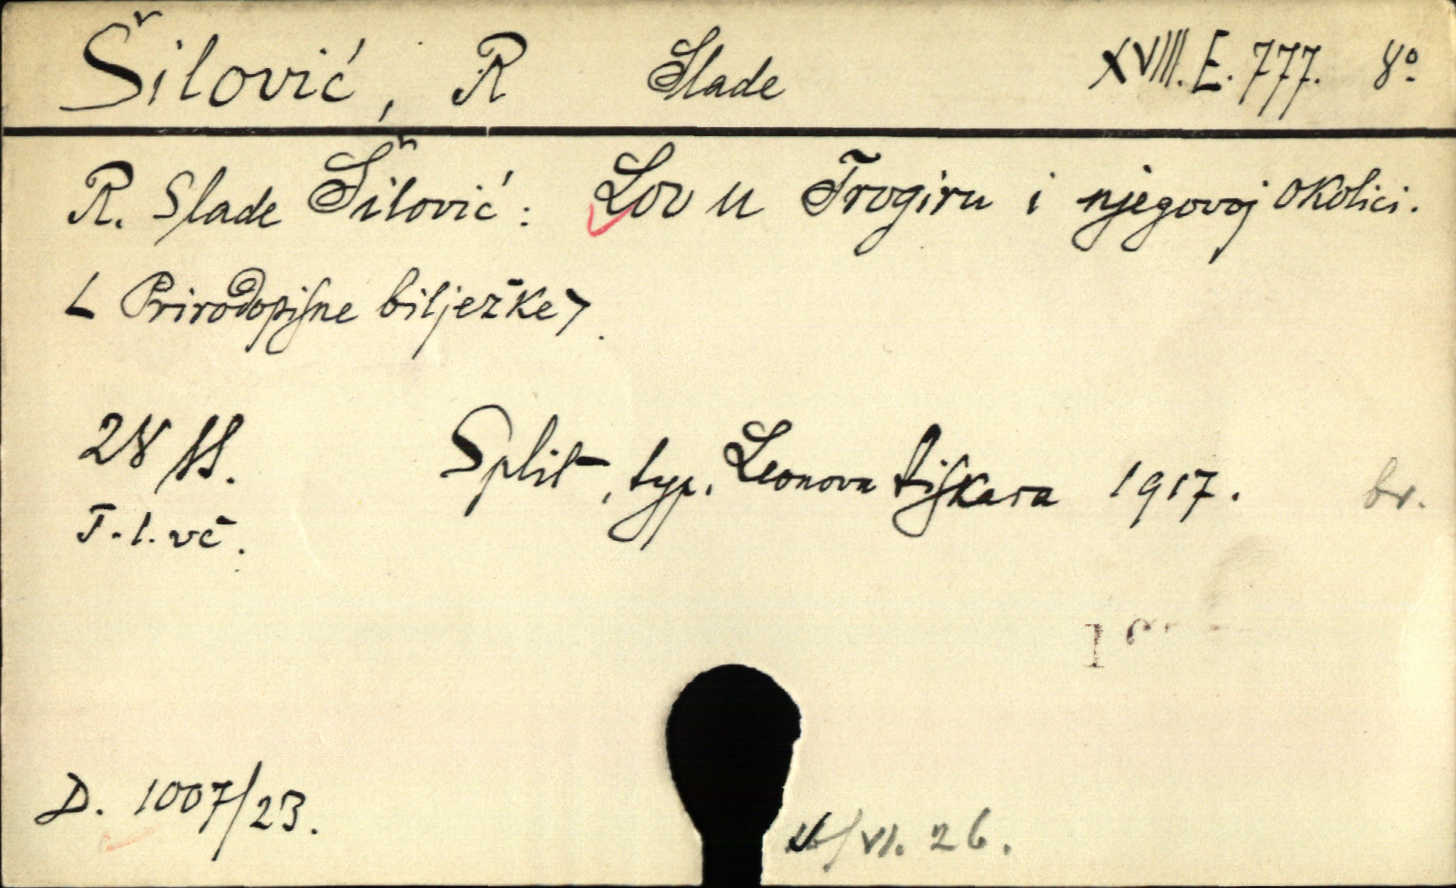 Šilović, R Slade XVIII. E. 777. 8°
R. Slade Šilović: Lov u Trogiru i njegovoj okolici.
< Prirodopisne bilježke >.
28 SS. Split, typ. Leonova tiskara 1917. br.
T. l. vč.
D. 1007/23.
/VI. 26.